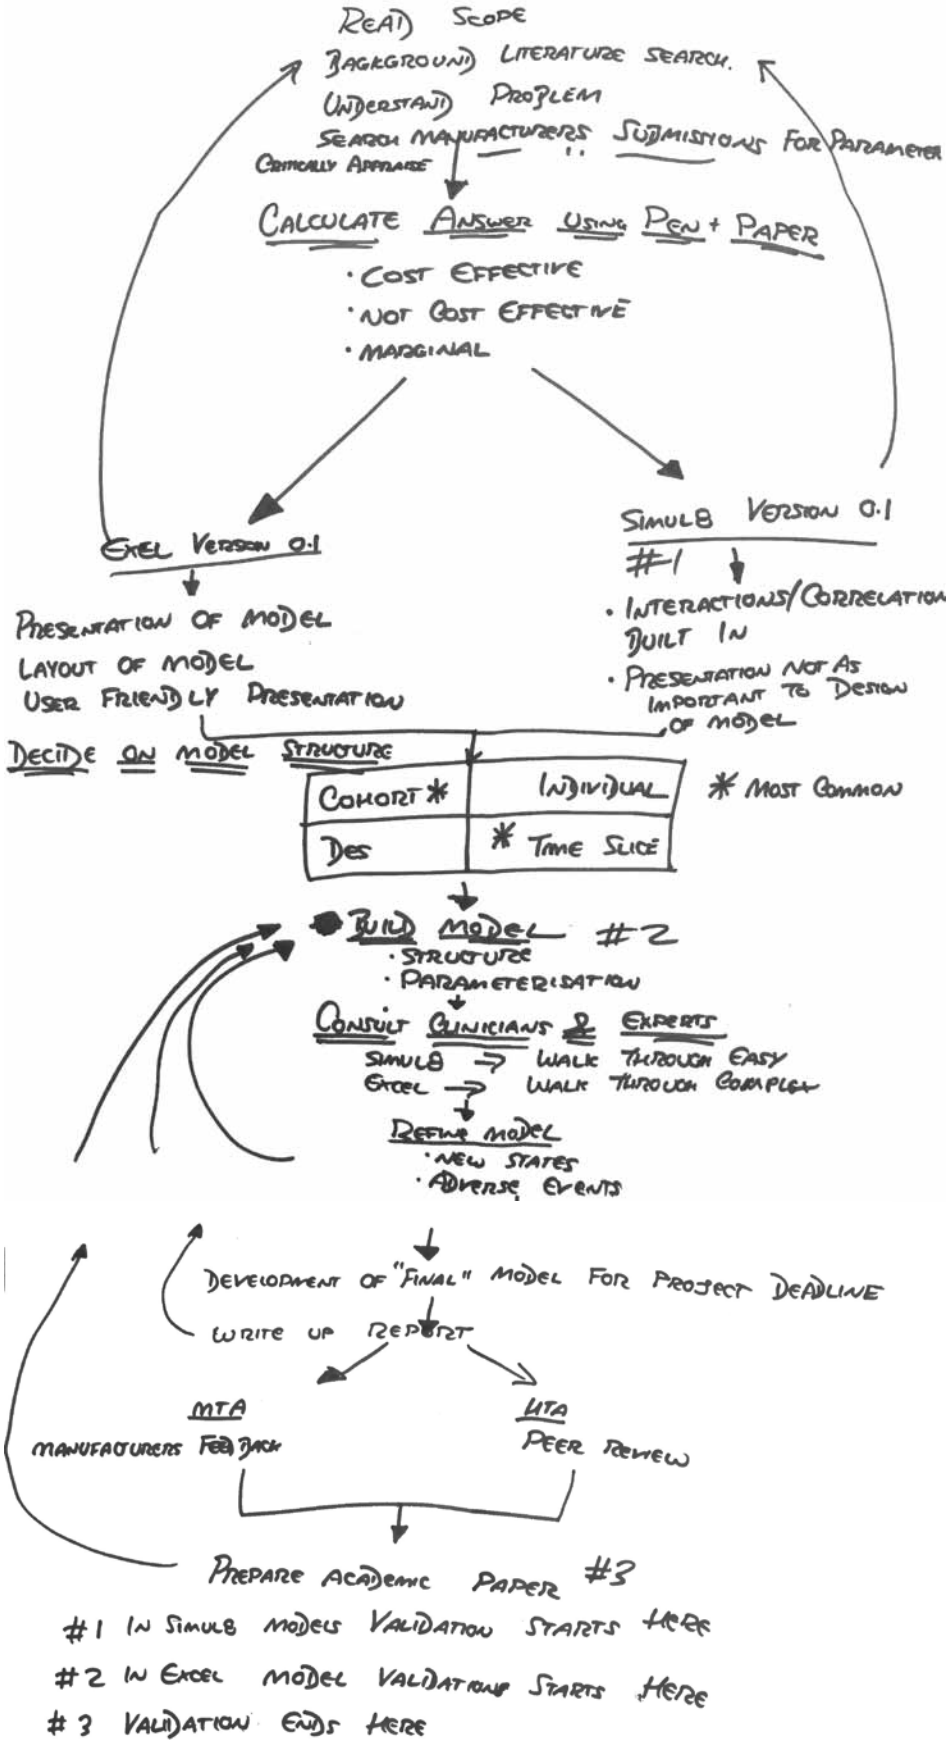 READ SCOPE
BACKGROUND LITERATURE SEARCH.
UNDERSTAND PROBLEM
SEARCH MANUFACTURERS SUBMISSIONS FOR PARAMETER
CRITICALLY APPRAISE
CALCULATE ANSWER USING PEN + PAPER
· COST EFFECTIVE
· NOT COST EFFECTIVE
· MARGINAL
EXEL VERSION 0.1
PRESENTATION OF MODEL
LAYOUT OF MODEL
USER FRIENDLY PRESENTATION
SIMUL8 VERSION 0.1
#1
· INTERACTIONS/CORRELATION
BUILT IN
· PRESENTATION NOT AS
IMPORTANT TO DESIGN
OF MODEL
DECIDE ON MODEL STRUCTURE
COHORT * INDIVIDUAL
* MOST COMMON
DES * TIME SLICE
BUILD MODEL #2
· STRUCTURE
· PARAMETERISATION
CONSULT CLINICIANS & EXPERTS
SIMUL8 → WALK THROUGH EASY
EXCEL → WALK THROUGH COMPLEX
REFINE MODEL
· NEW STATES
· ADVERSE EVENTS
DEVELOPMENT OF "FINAL" MODEL FOR PROJECT DEADLINE
WRITE UP REPORT
MTA
MANUFACTURERS FEEDBACK
HTA
PEER REVIEW
PREPARE ACADEMIC PAPER #3
#1 IN SIMUL8 MODELS VALIDATION STARTS HERE
#2 IN EXCEL MODEL VALIDATIONS STARTS HERE
#3 VALIDATION ENDS HERE